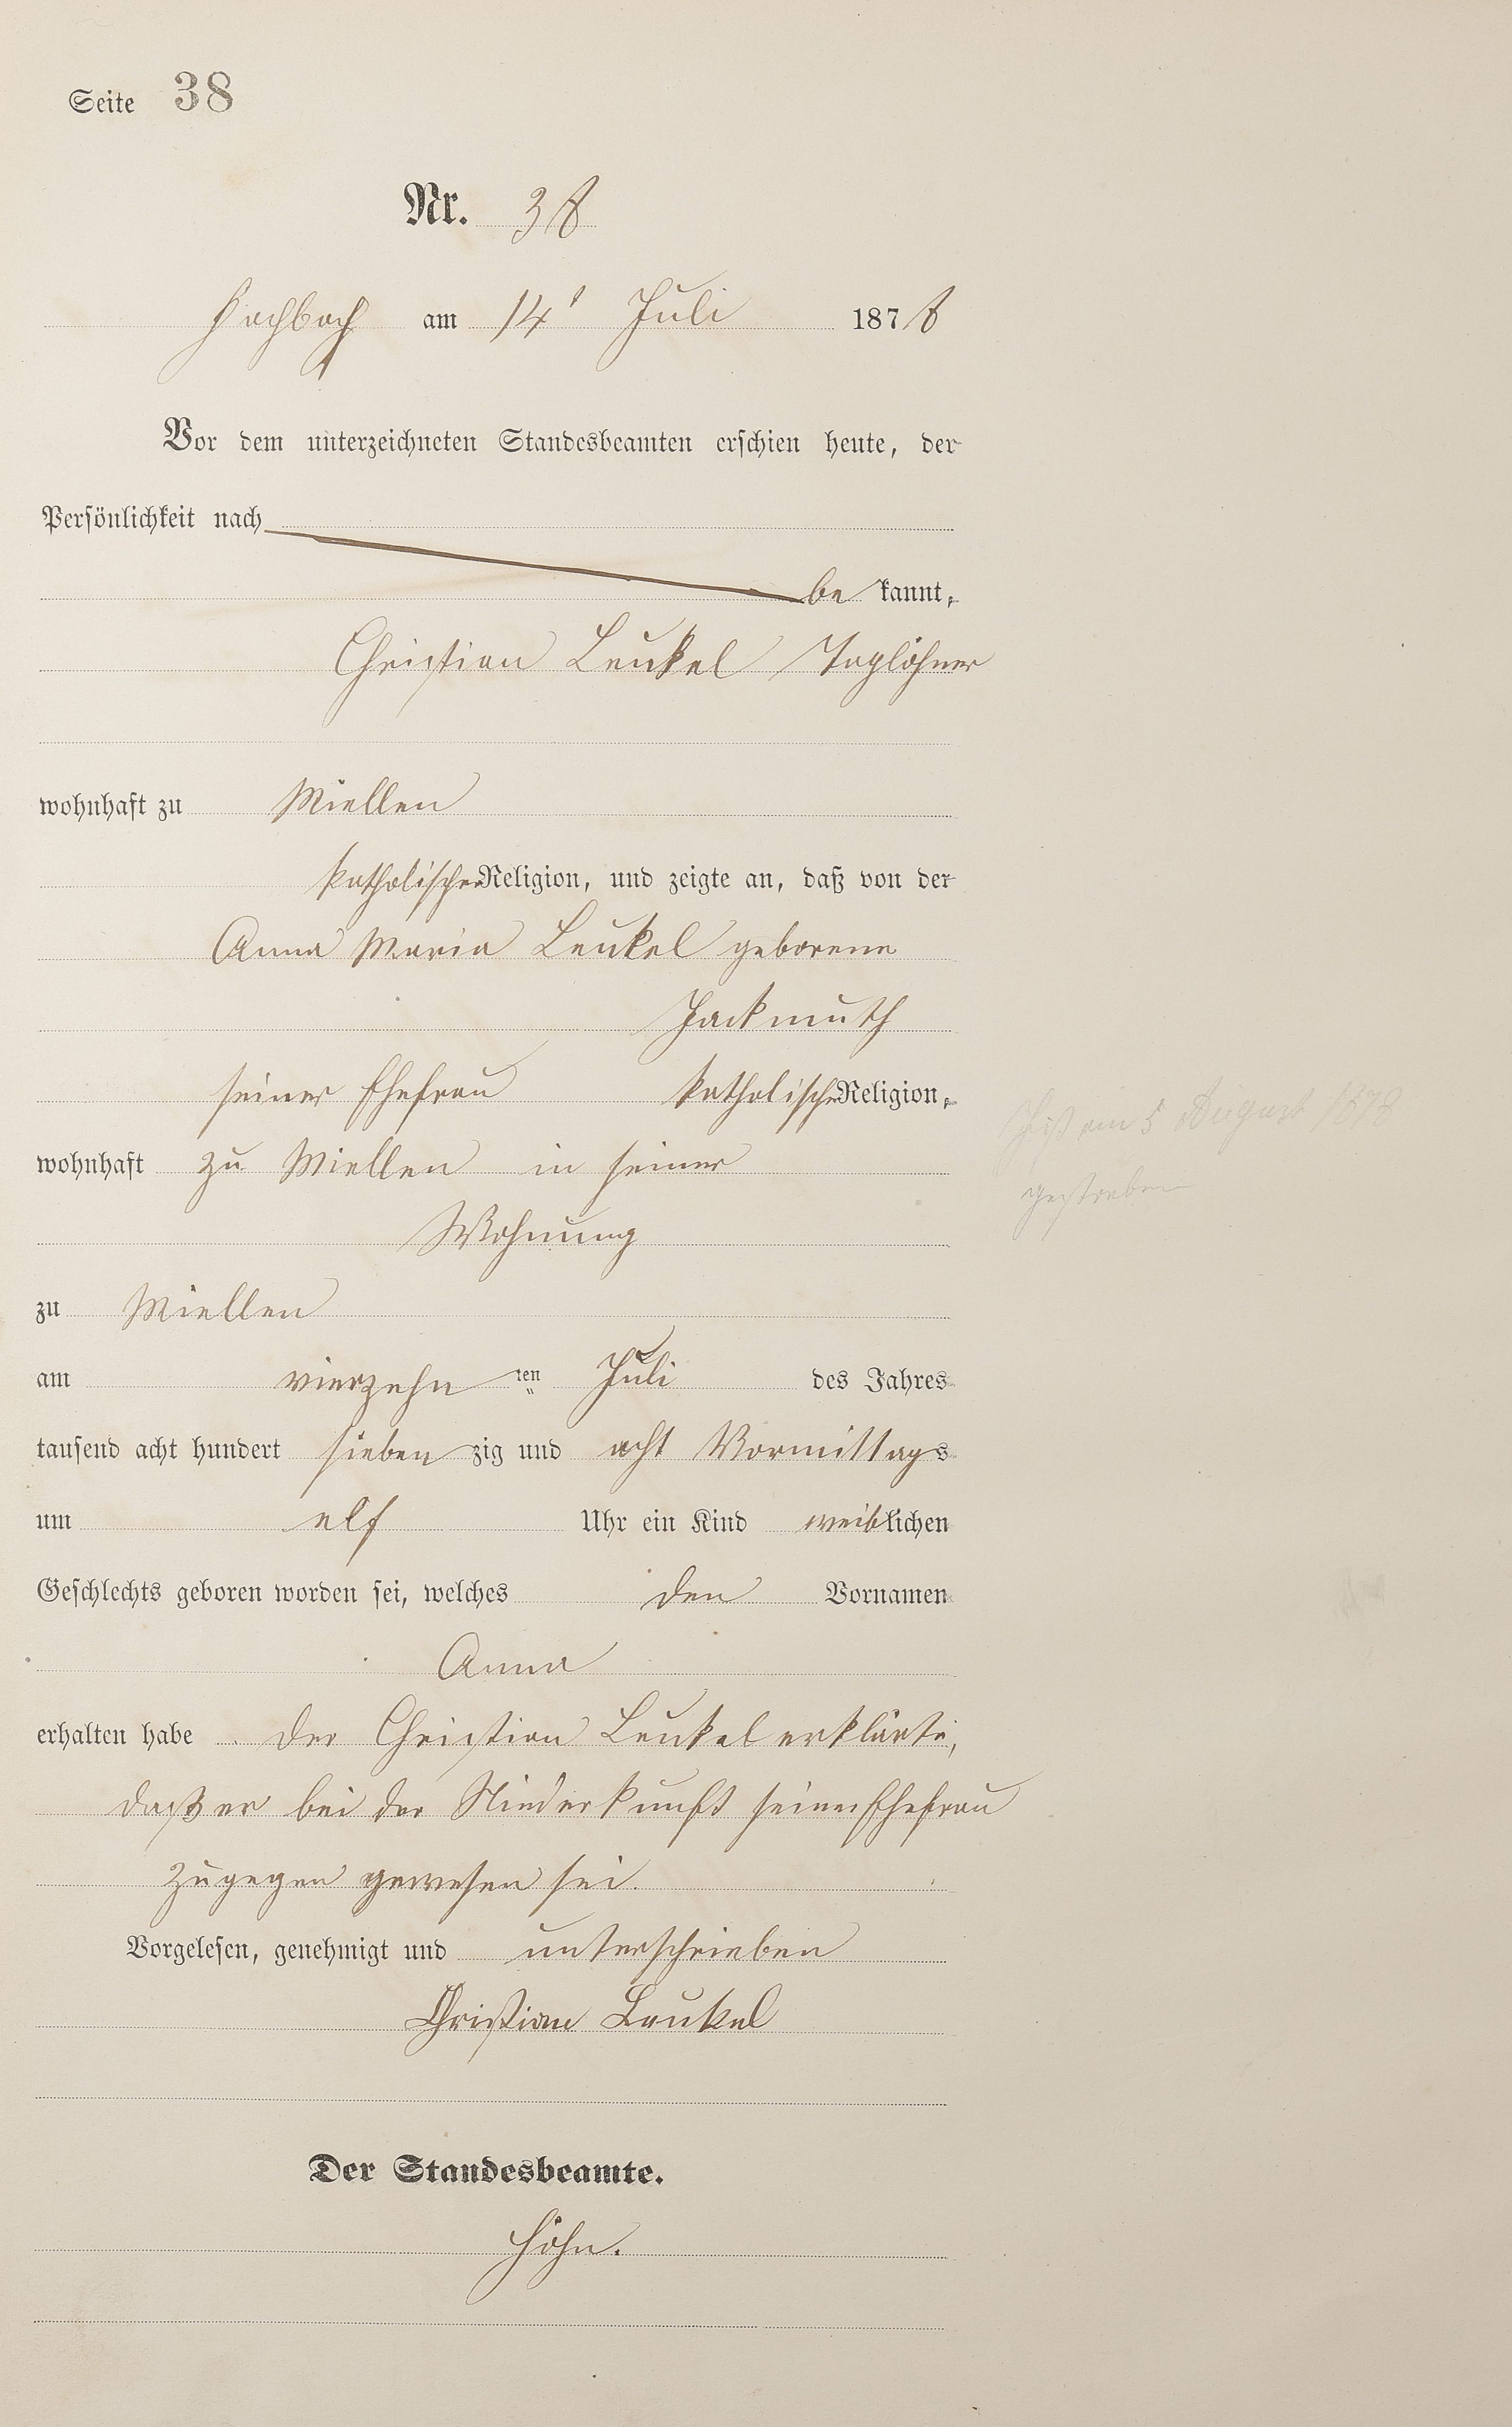 Seite 38
Nr. 38
Fachbach am 14t Juli 1878
Vor dem unterzeichneten Standesbeamten erschien heute, der
Persönlichkeit nach
be kannt,
Christian Leukel Taglöhner
wohnhaft zu Miellen
katholischer Religion, und zeigte an, daß von der
Anna Maria Leukel geborene
Hackmuth
seiner Ehefrau katholischer Religion,
wohnhaft zu Miellen in seiner
Wohnung
zu Miellen
am vierzehn ten Juli des Jahres
tausend acht hundert sieben zig und acht Vormittags
um elf Uhr ein Kind weiblichen
Geschlechts geboren worden sei, welches den Vornamen
Anna
erhalten habe. Der Christian Leukel erklärte,
daß er bei der Niederkunft seiner Ehefrau
zugegen gewesen sei.
Vorgelesen, genehmigt und unterschrieben
Christian Leukel
Der Standesbeamte.
Höhn.
am 5 August 1878
gestorben